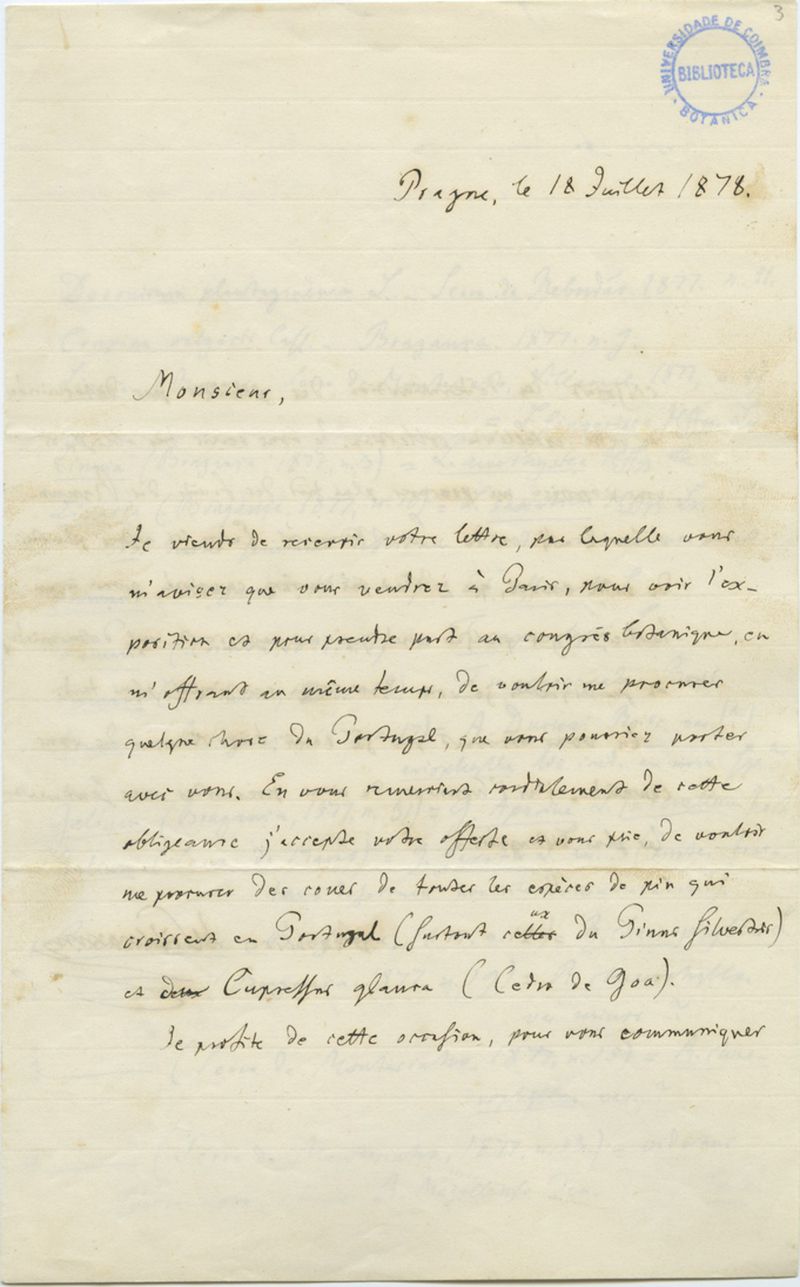 3
UNIVERSIDADE DE COIMBRA
BIBLIOTECA
BOTANICA
Prague, le 18 Juillet 1878.
Monsieur,
Je viends de recevoir votre lettre, par laquelle vous
m'avisez que vous vendrez à Paris, pour voir l'ex-
position et pour prendre part au congrès botanique, en
m'offrant au même temps, de vouloir me procurer
quelque chose du Portugal, que vous pourriez porter
avec vous. En vous remerciant cordialement de cette
obligeance j'accepte votre offerte et vous prie, de vouloir
me procurer des cones de toutes les espèces de pin qui
croissent en Portugal (surtout ceux du Pinus silvestris)
et Cupressus glauca (Cedro de Goa).
Je profite de cette occasion, pour vous communiquer